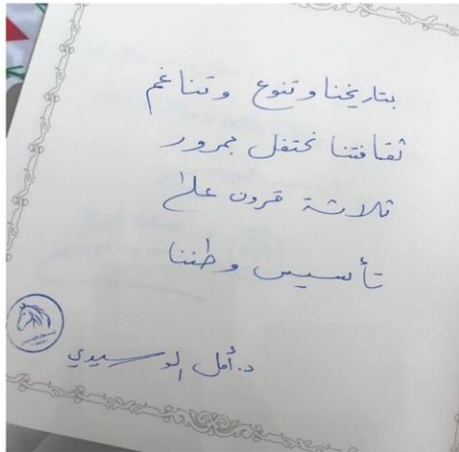 بتاريخنا وتنوع وتناغم
ثقافتنا نحتفل بمرور
ثلاثة قرون على
تأسيس وطننا
د. أمل الوسيدي